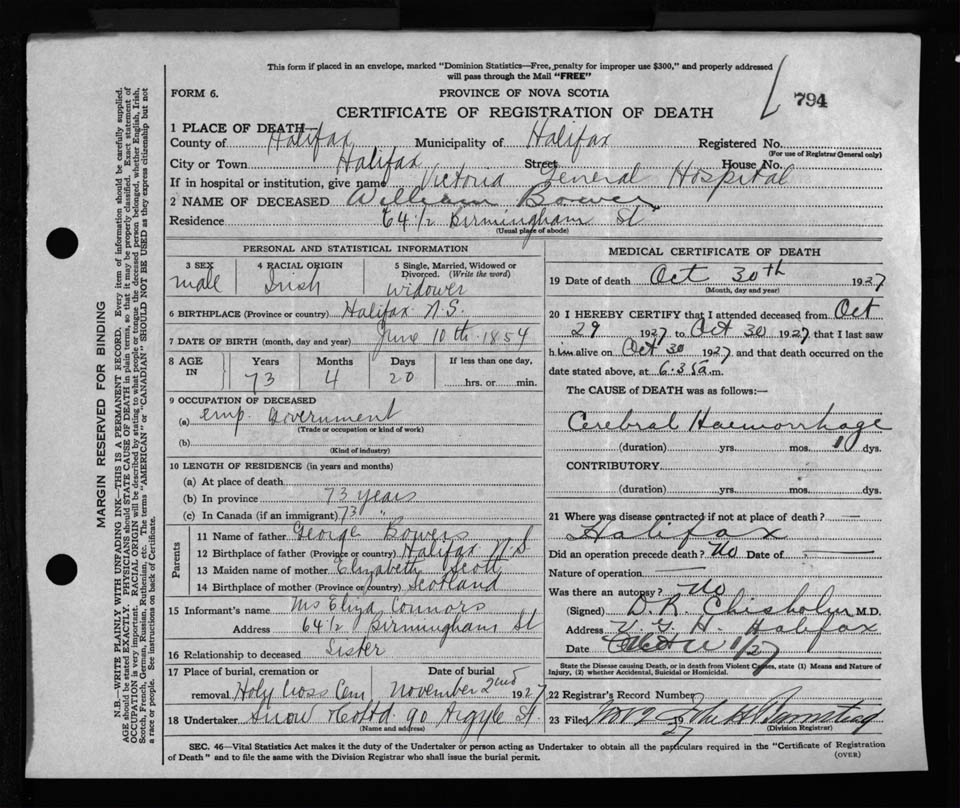 This form if placed in an envelope, marked "Dominion Statistics—Free, penalty for improper use $300," and properly addressed
will pass through the Mail "FREE"
794
FORM 6. PROVINCE OF NOVA SCOTIA
CERTIFICATE OF REGISTRATION OF DEATH
1 PLACE OF DEATH—
County of Halifax Municipality of Halifax Registered No.
(For use of Registrar General only)
City or Town Halifax Street House No.
If in hospital or institution, give name Victoria General Hospital
2 NAME OF DECEASED William Bower
Residence 64 1/2 Birmingham St
(Usual place of abode)
PERSONAL AND STATISTICAL INFORMATION
3 SEX 4 RACIAL ORIGIN 5 Single, Married, Widowed or
Divorced. (Write the word)
male Irish widower
6 BIRTHPLACE (Province or country) Halifax N.S.
7 DATE OF BIRTH (month, day and year) June 10th 1854
8 AGE IN Years Months Days If less than one day,
73 4 20 hrs. or min.
9 OCCUPATION OF DECEASED
(a) emp. Government
(Trade or occupation or kind of work)
(b)
(Kind of industry)
10 LENGTH OF RESIDENCE (in years and months)
(a) At place of death
(b) In province 73 years
(c) In Canada (if an immigrant) 73 "
Parents
11 Name of father George Bowers
12 Birthplace of father (Province or country) Halifax N S
13 Maiden name of mother Elizabeth Scott
14 Birthplace of mother (Province or Country) Scotland
15 Informant's name Ms Eliza Connors
Address 64 1/2 Birmingham St
16 Relationship to deceased Sister
17 Place of burial, cremation or Date of burial
removal Holy Cross Cem November 2nd 1927
18 Undertaker Snow & Co Ltd. 90 Argyle St.
(Name and address)
MEDICAL CERTIFICATE OF DEATH
19 Date of death Oct 30th 1927
(Month, day and year)
20 I HEREBY CERTIFY that I attended deceased from Oct
29 1927 to Oct 30 1927 that I last saw
him alive on Oct 30 1927 and that death occurred on the
date stated above, at 6.35 a.m.
The CAUSE of DEATH was as follows:—
Cerebral Haemorrhage
(duration) yrs. mos. 1 dys.
CONTRIBUTORY
(duration) yrs. mos. dys.
21 Where was disease contracted if not at place of death? —
Halifax
Did an operation precede death? No Date of —
Nature of operation —
Was there an autopsy? No
(Signed) D. R. Chisholm M.D.
Address V. G. H. Halifax
Date
State the Disease causing Death, or in death from Violent Causes, state (1) Means and Nature of
Injury, (2) whether Accidental, Suicidal or Homicidal.
22 Registrar's Record Number
23 Filed Nov 2 1927
(Division Registrar)
SEC. 46—Vital Statistics Act makes it the duty of the Undertaker or person acting as Undertaker to obtain all the particulars required in the "Certificate of Registration
of Death" and to file the same with the Division Registrar who shall issue the burial permit.
(OVER)
MARGIN RESERVED FOR BINDING
N.B.—WRITE PLAINLY WITH UNFADING INK—THIS IS A PERMANENT RECORD. Every item of information should be carefully supplied.
AGE should be stated EXACTLY. PHYSICIANS should STATE CAUSE OF DEATH in plain terms, so that it may be properly classified. Exact statement of
OCCUPATION is very important. RACIAL ORIGIN will be described by stating to what people or tongue the deceased person belonged, whether English, Irish,
Scotch, French, German, Russian, Ruthenian, etc. The terms "AMERICAN" or "CANADIAN" SHOULD NOT BE USED as they express citizenship but not
a race or people. See instructions on back of Certificate.